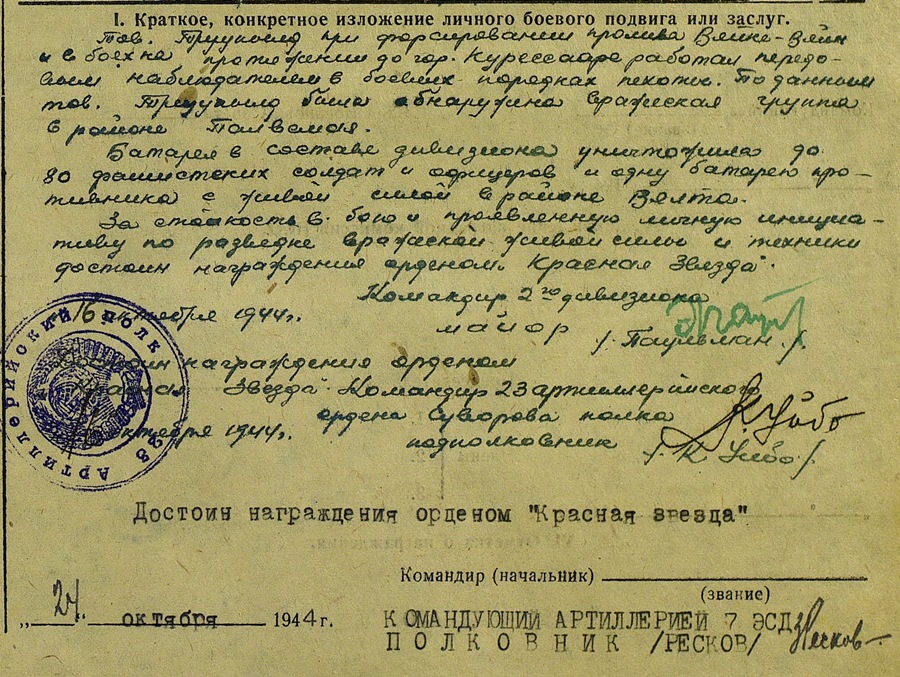 I. Краткое, конкретное изложение личного боевого подвига или заслуг.
Тов. при форсировании пролива Вяйке-Вяйн
и в боях на протяжении до гор. Курессааре работал передо-
вым наблюдателем в боевых порядках пехоты. По данным
тов. была обнаружена вражеская группа
в районе
Батарея в составе дивизиона уничтожила до
80 фашистских солдат и офицеров и одну батарею про-
тивника с живой силой в районе Вялта.
За стойкость в бою и проявленную личную инициа-
тиву по разведке вражеской живой силы и техники
достоин награждения орденом „Красная Звезда".
Командир 2го дивизиона
16 октября 1944г. майор /Паульман./
Достоин награждения орденом
„Красная Звезда" Командир 23 артиллерийского
ордена Суворова полка
октября 1944г. подполковник /К Уибо/
К. Уибо
23 АРТИЛЛЕРИЙСКИЙ ПОЛК
Достоин награждения орденом "Красная звезда"
Командир (начальник)
(звание)
„24" октября 1944 г. КОМАНДУЮЩИЙ АРТИЛЛЕРИЕЙ 7 ЭСД
ПОЛКОВНИК /РЕСКОВ/ Ресков